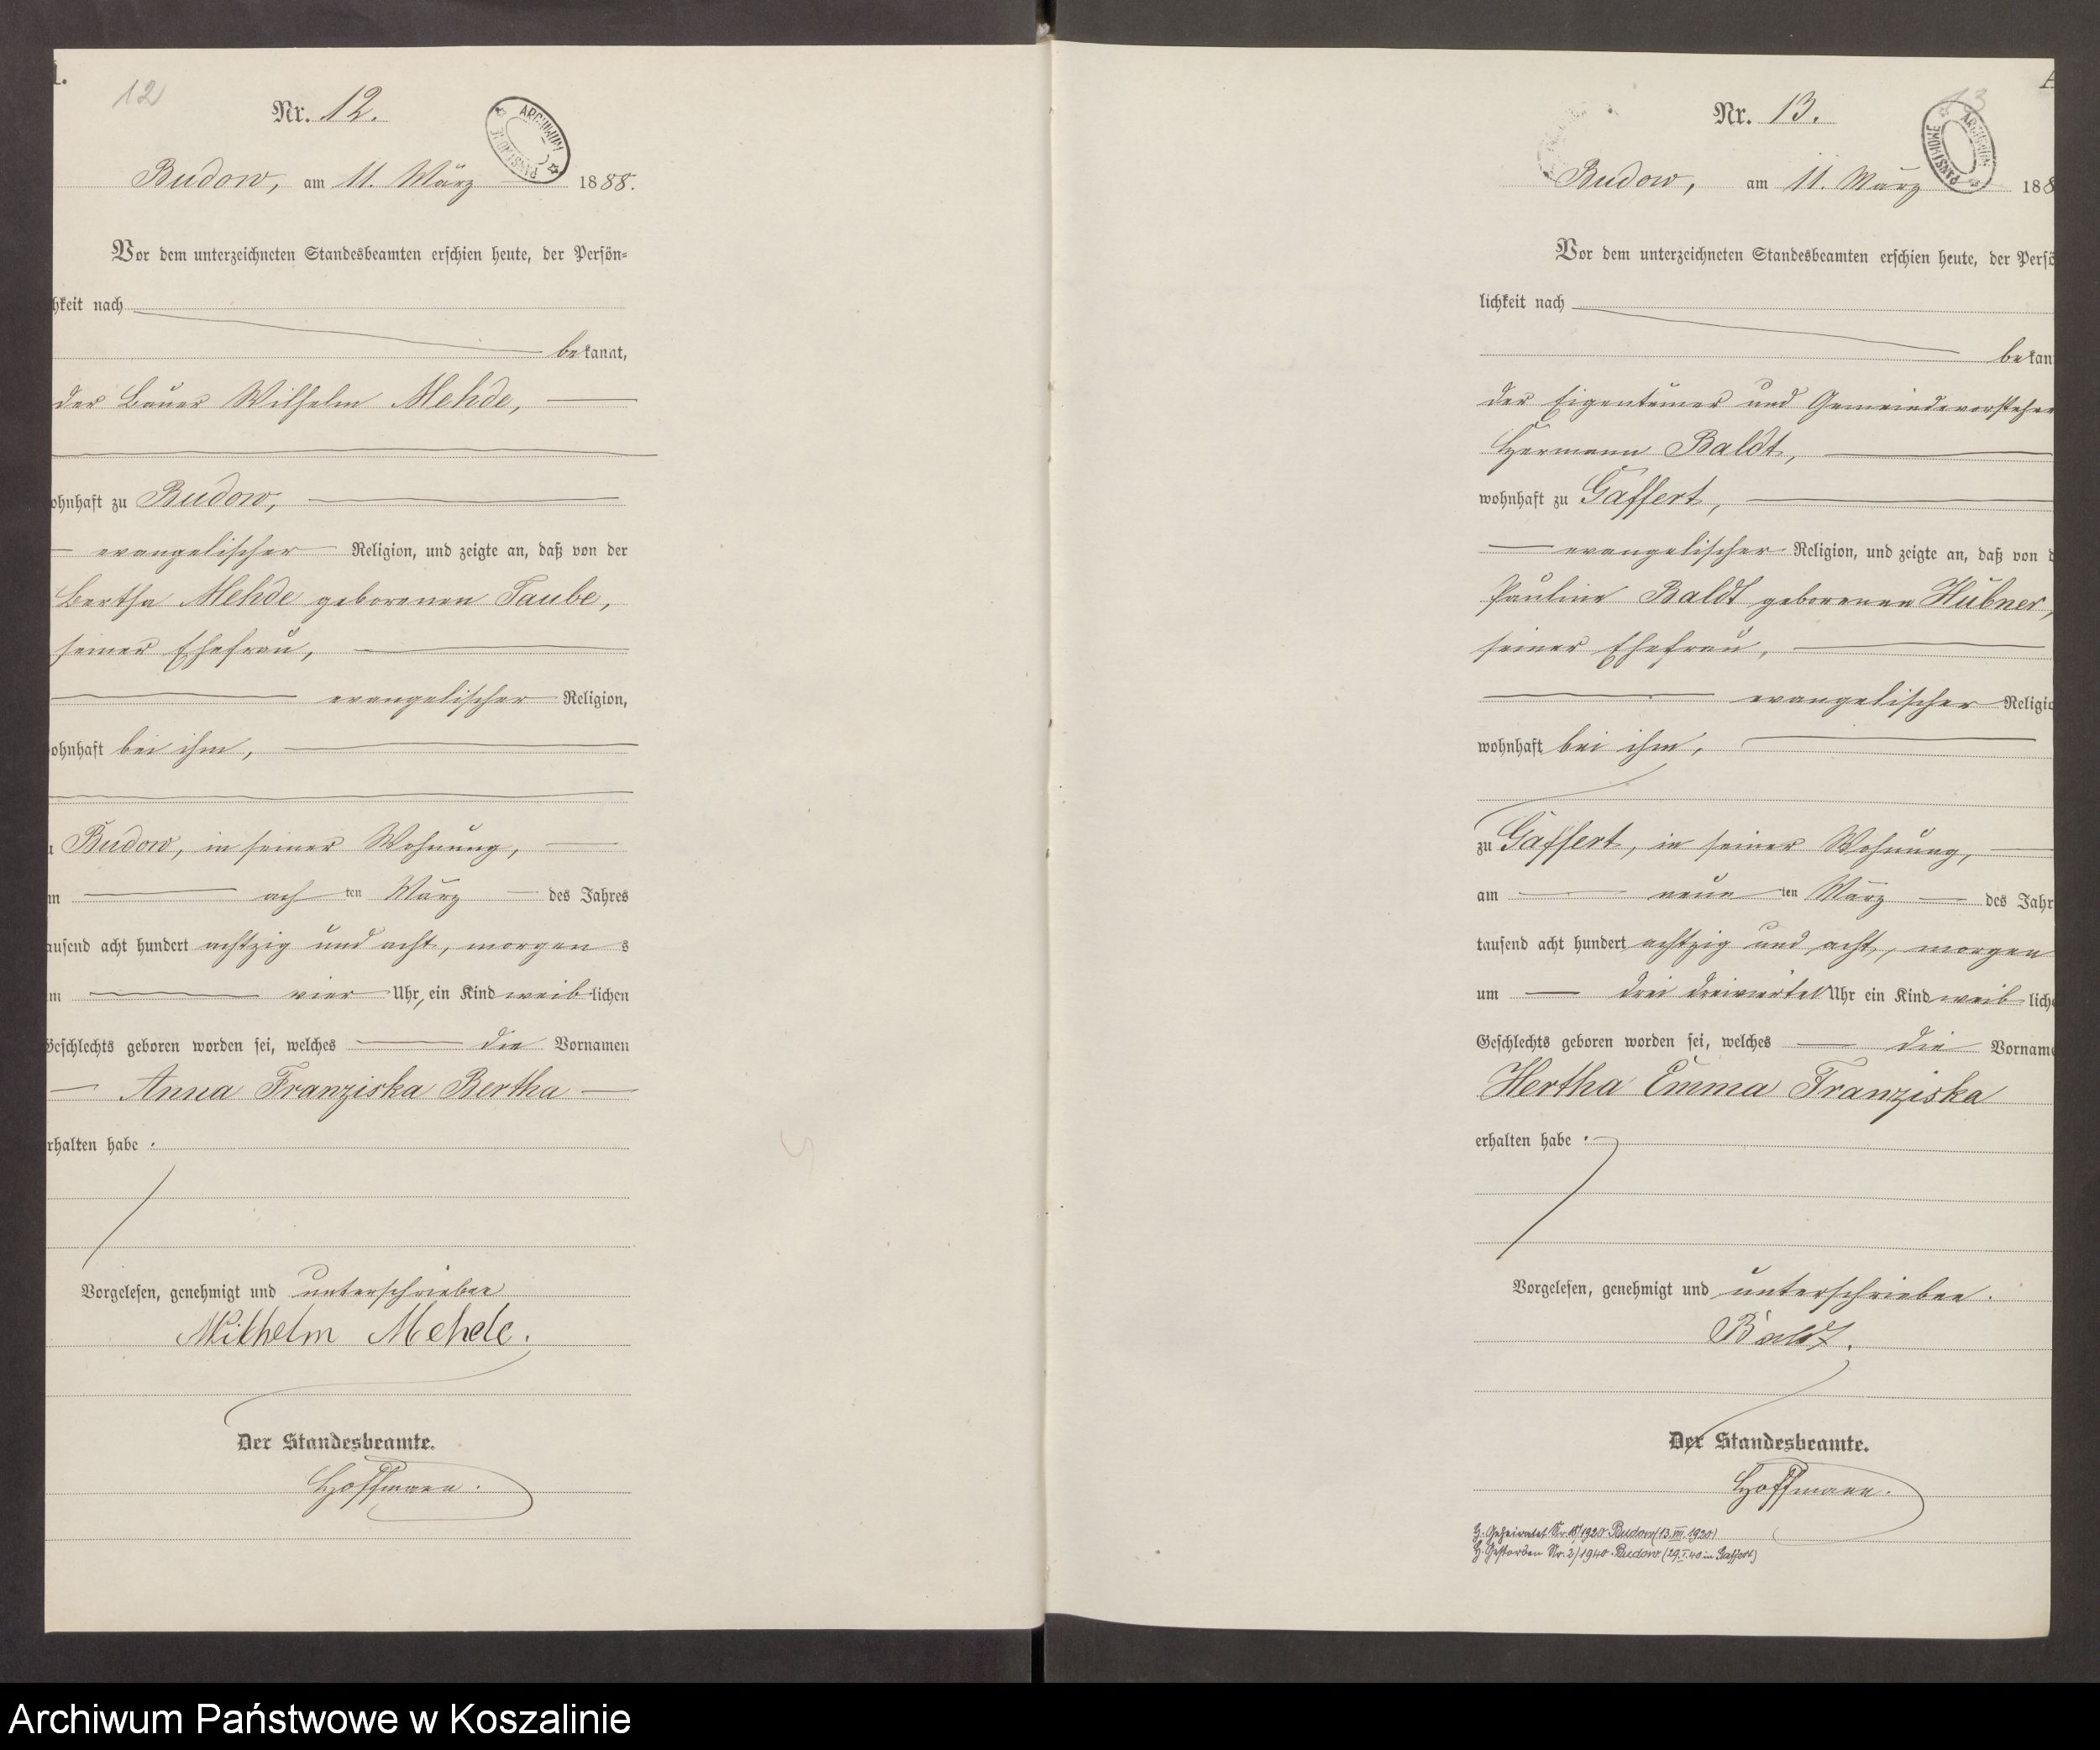 12
Nr. 12.
ARCHIWUM PAŃSTWOWE
Budow, am 11. März 1888.
Vor dem unterzeichneten Standesbeamten erschien heute, der Persön=
hkeit nach
bekannt,
der Bauer Wilhelm Mehde,
ohnhaft zu Budow,
evangelischer Religion, und zeigte an, daß von der
Bertha Mehde geborenen Taube,
seiner Ehefrau,
evangelischer Religion,
ohnhaft bei ihm,
Budow, in seiner Wohnung,
ach ten März des Jahres
tausend acht hundert achtzig und acht, morgens
vier Uhr, ein Kind weiblichen
Geschlechts geboren worden sei, welches die Vornamen
Anna Franziska Bertha
rhalten habe.
Vorgelesen, genehmigt und unterschrieben
Wilhelm Mehde.
Der Standesbeamte.
Hoffmann.
13
Nr. 13.
ARCHIWUM PAŃSTWOWE
Budow, am 11. März 188
Vor dem unterzeichneten Standesbeamten erschien heute, der Persö
lichkeit nach
bekan
der Eigentümer und Gemeindevorsteher
Hermann Baldt,
wohnhaft zu Gaffert,
evangelischer Religion, und zeigte an, daß von d
Pauline Baldt geborenen Hübner,
seiner Ehefrau,
evangelischer Religio
wohnhaft bei ihm,
zu Gaffert, in seiner Wohnung,
am neun ten März des Jahr
tausend acht hundert achtzig und acht, morgen
um drei dreiviertel Uhr ein Kind weiblich
Geschlechts geboren worden sei, welches die Vorname
Hertha Emma Franziska
erhalten habe.
Vorgelesen, genehmigt und unterschrieben.
Baldt.
Der Standesbeamte.
Hoffmann.
Geheiratet Nr. 18/1920 Budow (13.VIII.1920)
Gestorben Nr. 2/1940 Budow (29.I.40 in Gaffert)
Archiwum Państwowe w Koszalinie